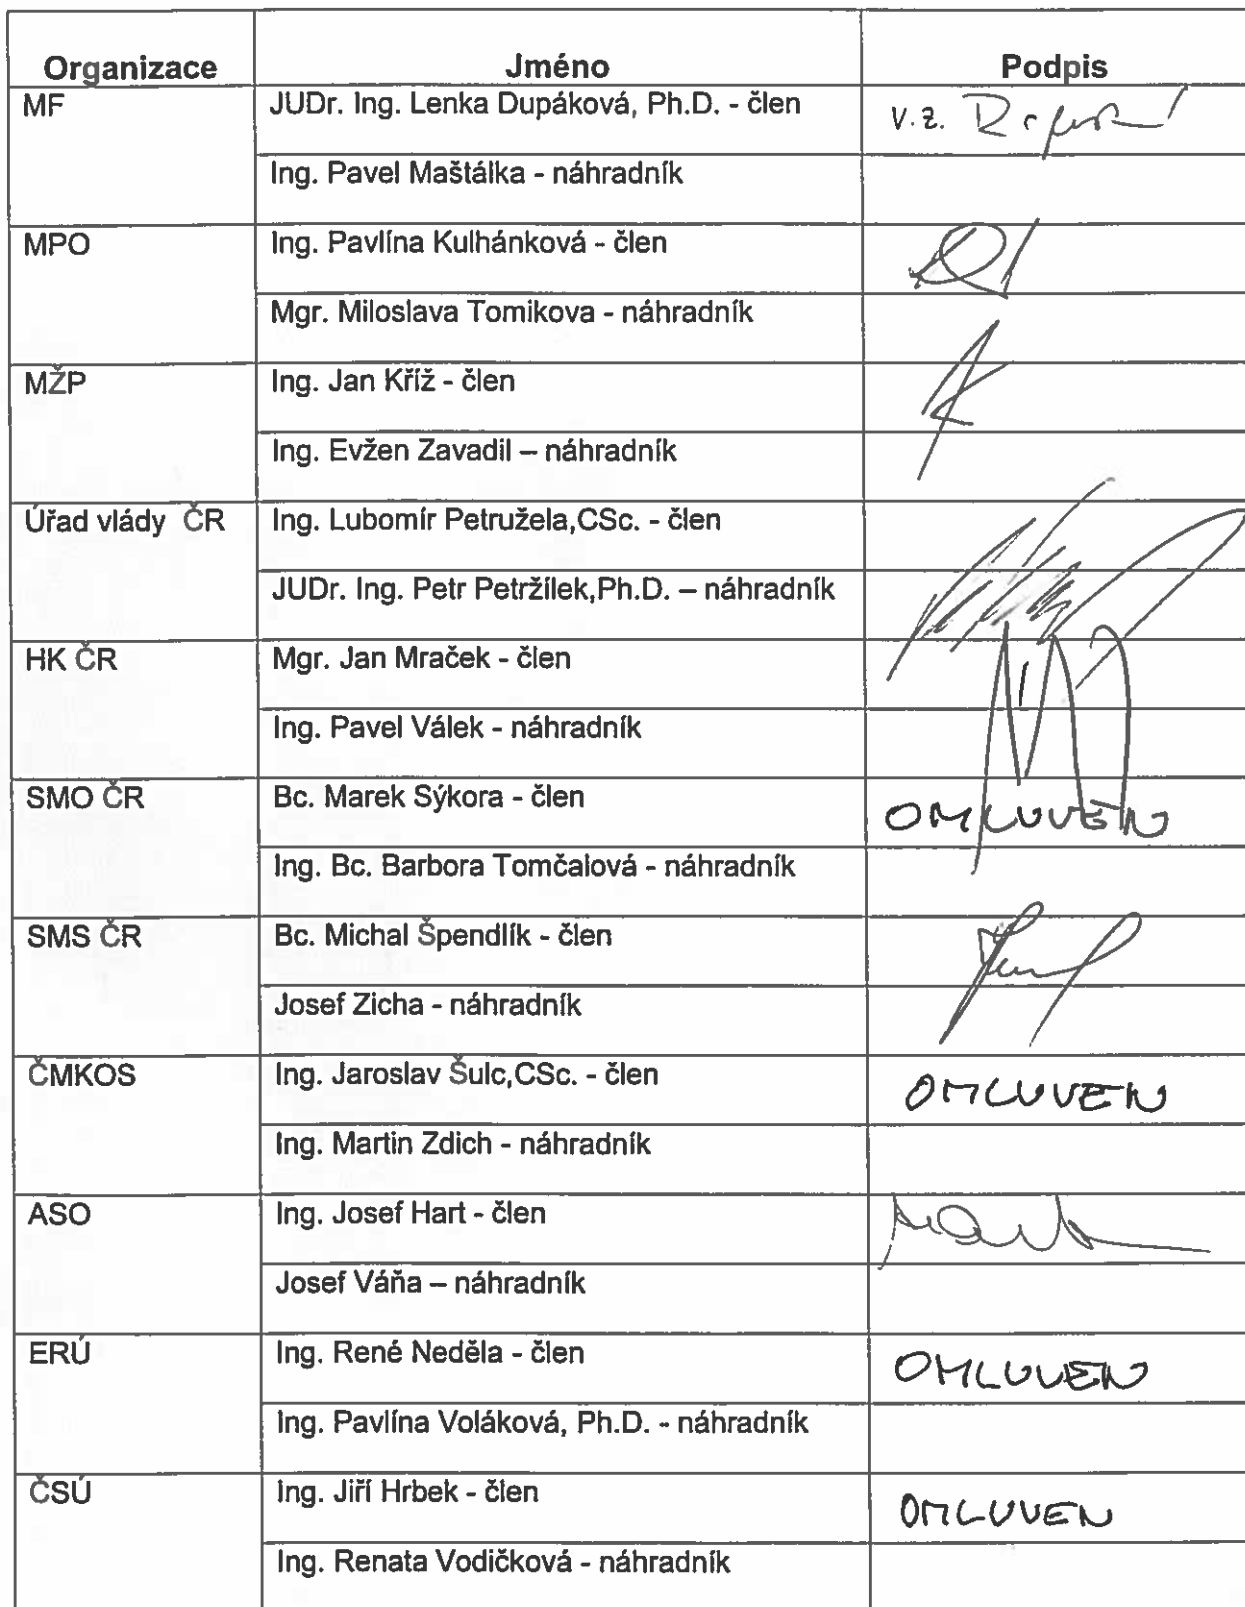 Organizace Jméno Podpis
MF JUDr. Ing. Lenka Dupáková, Ph.D. - člen v.z.
Ing. Pavel Maštálka - náhradník
MPO Ing. Pavlína Kulhánková - člen
Mgr. Miloslava Tomikova - náhradník
MŽP Ing. Jan Kříž - člen
Ing. Evžen Zavadil – náhradník
Úřad vlády ČR Ing. Lubomír Petružela,CSc. - člen
JUDr. Ing. Petr Petržílek,Ph.D. – náhradník
HK ČR Mgr. Jan Mraček - člen
Ing. Pavel Válek - náhradník
SMO ČR Bc. Marek Sýkora - člen OMLUVEN
Ing. Bc. Barbora Tomčalová - náhradník
SMS ČR Bc. Michal Špendlík - člen
Josef Zicha - náhradník
ČMKOS Ing. Jaroslav Šulc,CSc. - člen OMLUVEN
Ing. Martin Zdich - náhradník
ASO Ing. Josef Hart - člen
Josef Váňa – náhradník
ERÚ Ing. René Neděla - člen OMLUVEN
Ing. Pavlína Voláková, Ph.D. - náhradník
ČSÚ Ing. Jiří Hrbek - člen OMLUVEN
Ing. Renata Vodičková - náhradník